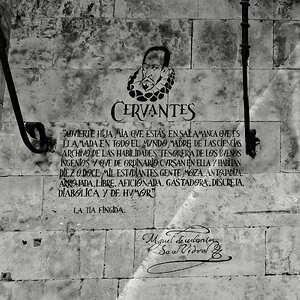 CERVANTES
"ADVIERTE HIJA MIA QUE ESTÁS EN SALAMANCA QUE ES
LLAMADA EN TODO EL MUNDO MADRE DE LAS CIENCIAS
ARCHIVO DE LAS HABILIDADES, TESORERA DE LOS BUENOS
INGENIOS Y QUE DE ORDINARIO CURSAN EN ELLA Y HABITAN
DIEZ O DOCE MIL ESTUDIANTES, GENTE MOZA, ANTOJADIZA,
ARROJADA, LIBRE, AFICIONADA, GASTADORA, DISCRETA,
DIABÓLICA Y DE HUMOR"
LA TIA FINGIDA.
Miguel de cerbantes
Saavedra